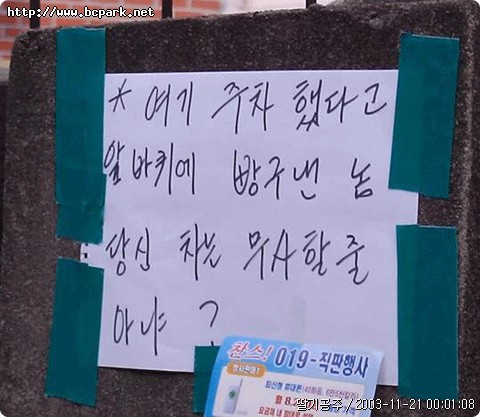 http://www.bcpark.net
* 여기 주차 했다고
앞바퀴에 빵구낸 놈
당신 차는 무사할 줄
아냐 ?
찬스! 019-직판행사
최신형 휴대폰
딸기공주 / 2003-11-21 00:01:08